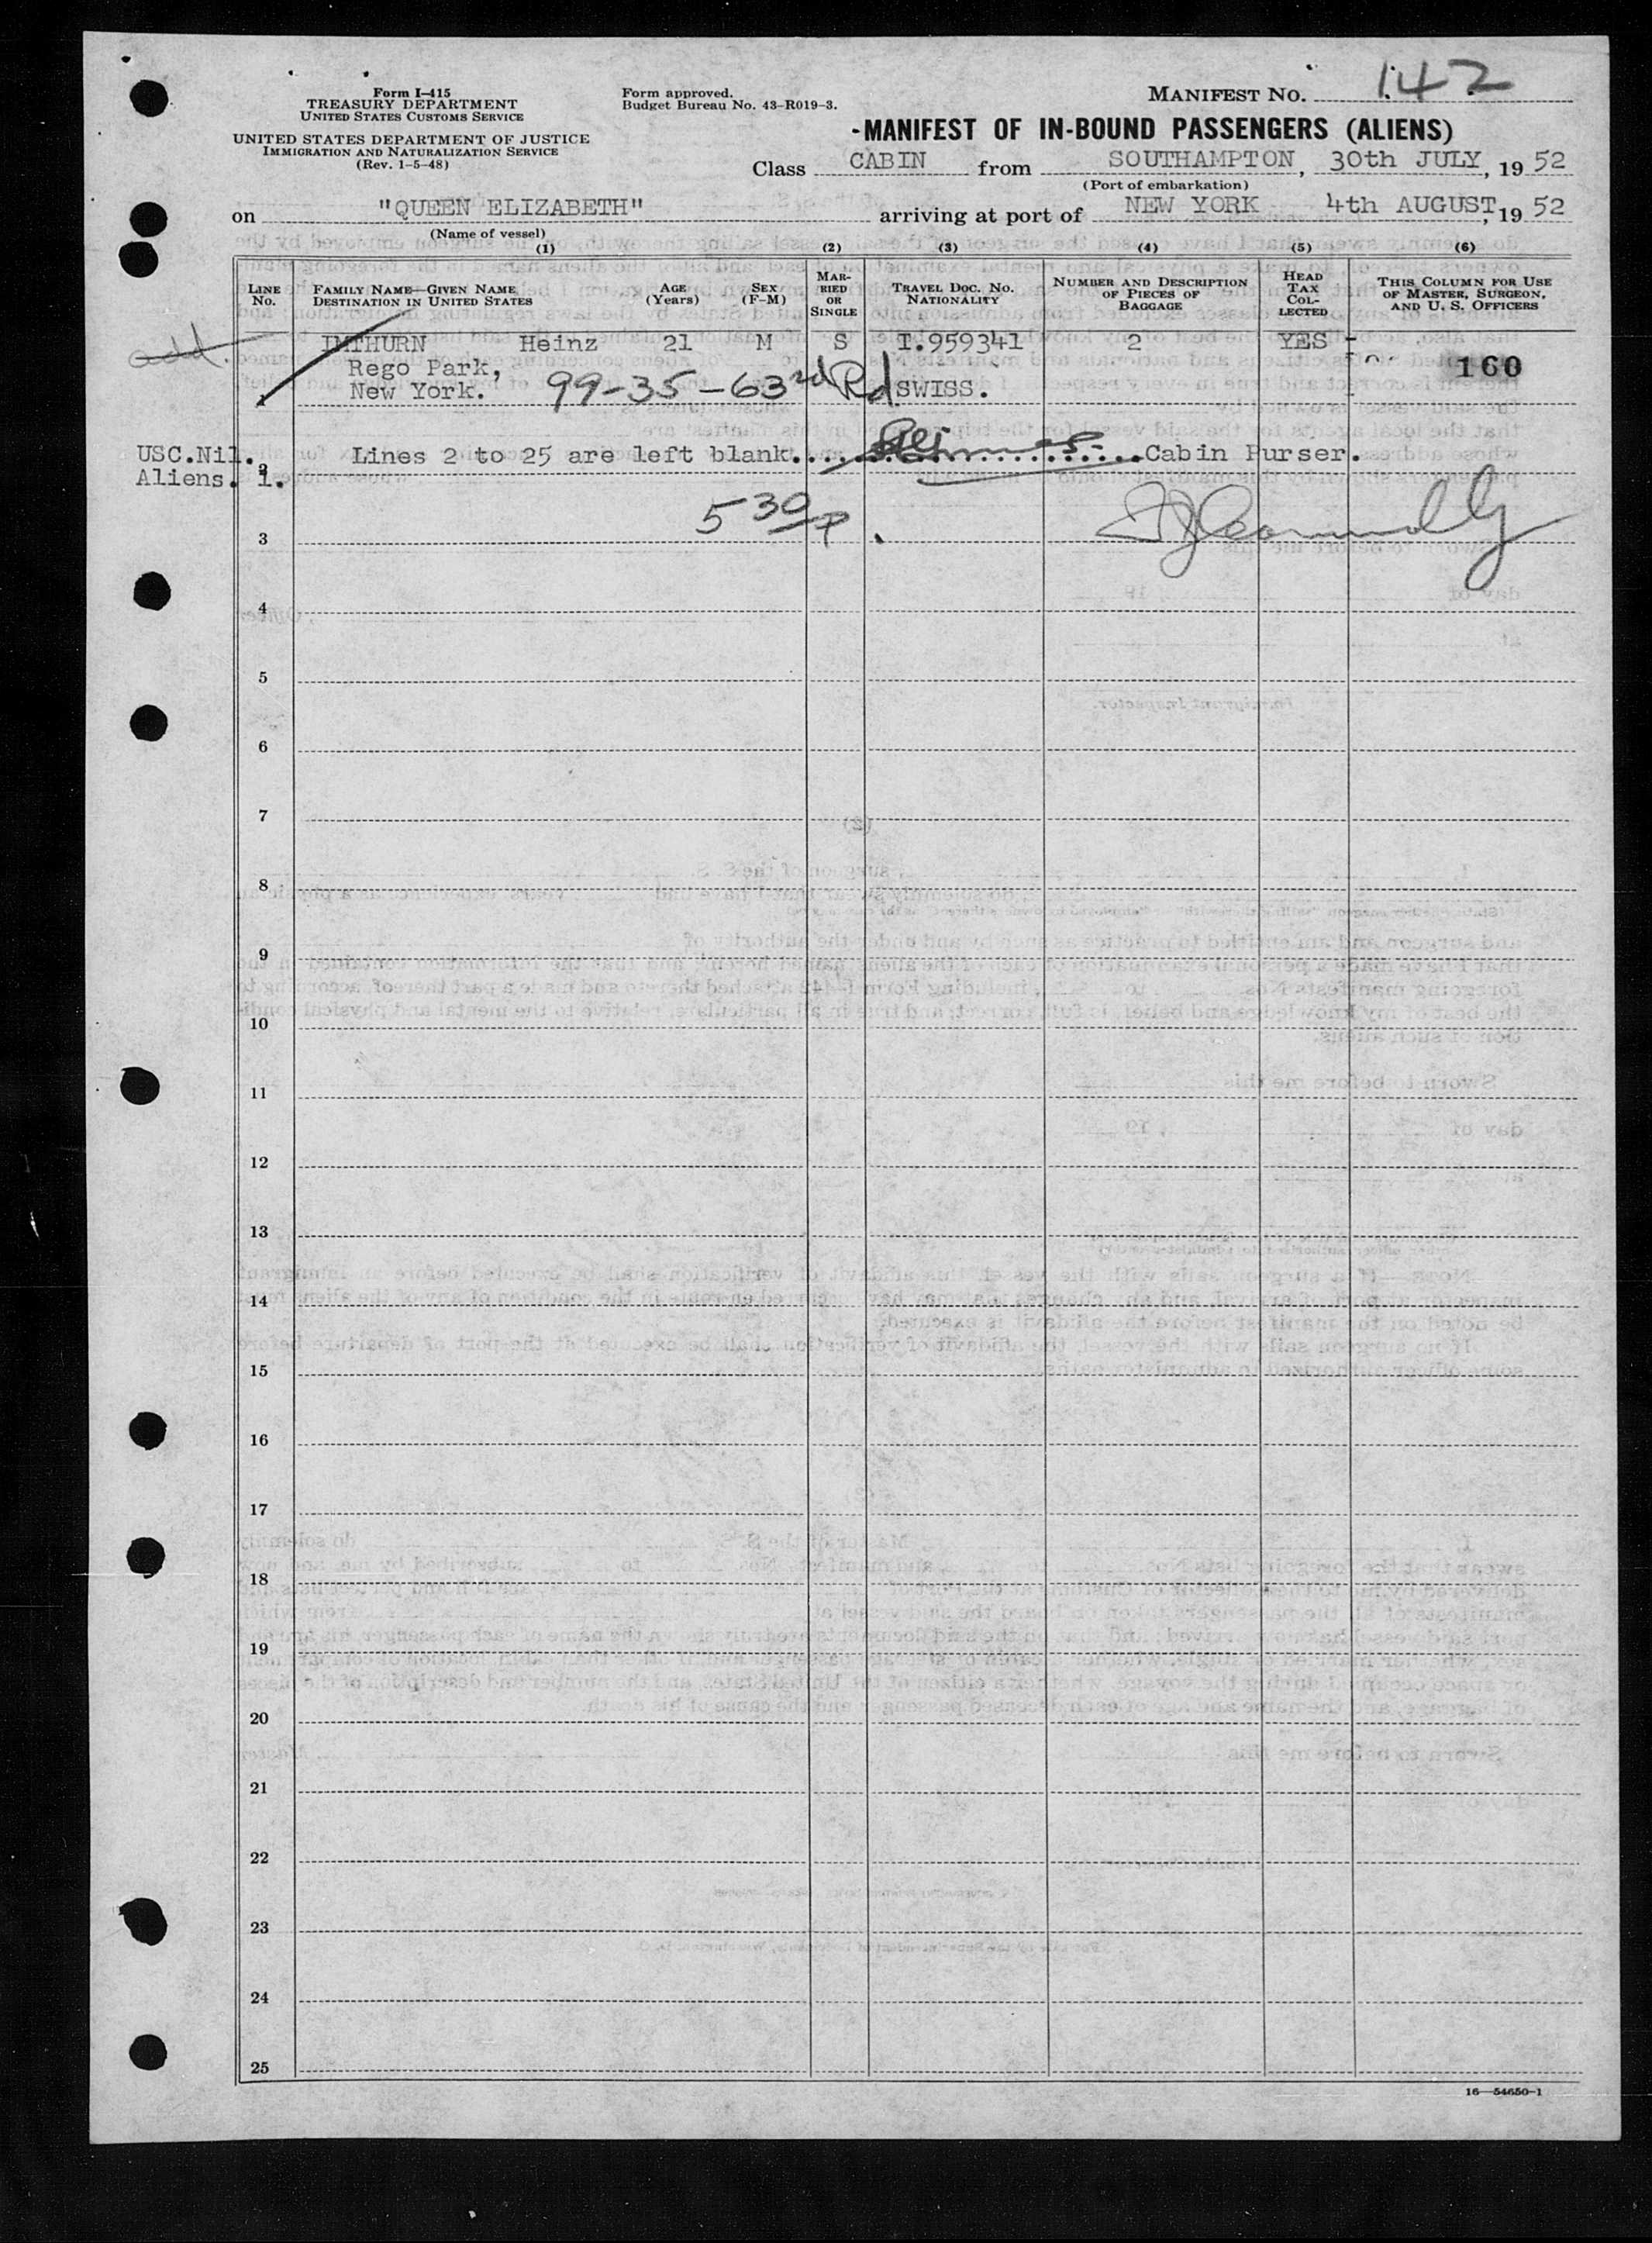 Form I-415
TREASURY DEPARTMENT
UNITED STATES CUSTOMS SERVICE
UNITED STATES DEPARTMENT OF JUSTICE
IMMIGRATION AND NATURALIZATION SERVICE
(Rev. 1-5-48)
Form approved.
Budget Bureau No. 43-R019-3.
MANIFEST NO. 142
-MANIFEST OF IN-BOUND PASSENGERS (ALIENS)
Class CABIN from SOUTHAMPTON, 30th JULY, 1952
(Port of embarkation)
on "QUEEN ELIZABETH" arriving at port of NEW YORK 4th AUGUST, 1952
(Name of vessel)
(1) (2) (3) (4) (5) (6)
LINE NO.
FAMILY NAME—GIVEN NAME
DESTINATION IN UNITED STATES
AGE (Years)
SEX (F-M)
MARRIED OR SINGLE
TRAVEL DOC. NO.
NATIONALITY
NUMBER AND DESCRIPTION OF PIECES OF BAGGAGE
HEAD TAX COLLECTED
THIS COLUMN FOR USE OF MASTER, SURGEON, AND U. S. OFFICERS
add.
IMTHURN Heinz 21 M S I.959341 2 YES -
Rego Park, 160
New York. 99-35-63rd Rd SWISS.
1
USC.Nil. Lines 2 to 25 are left blank. Cabin Purser.
2
Aliens. 1.
5 30/P.
3
4
5
6
7
8
9
10
11
12
13
14
15
16
17
18
19
20
21
22
23
24
25
16—54650-1